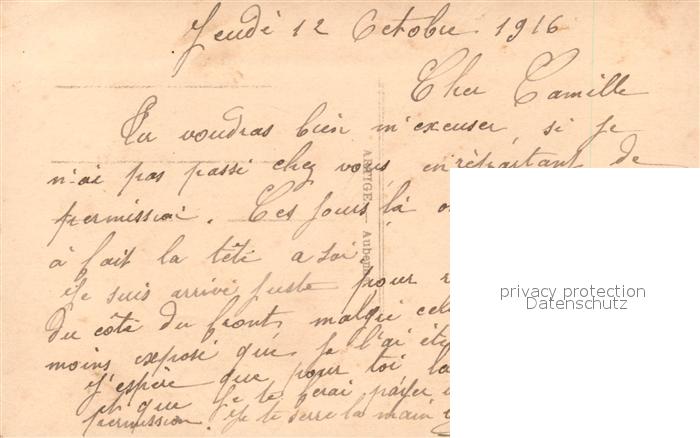 Jeudi 12 Octobre 1916
Cher Camille
Tu voudras bien m'excuser si je
n-ai pas passé chez vous en repartant de
permission. Ces jours là
à fait la tête a soi,
je suis arrivé juste pour
du côté du front, malgré
moins exposé que je l'ai
J'espère que pour toi
et que je te ferai payer
permission. Je te serre la main
ARTIGE — Aubenas
privacy protection
Datenschutz